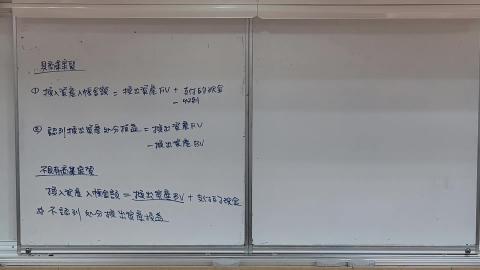 具商業實質
① 換入資產入帳金額 = 換出資產FV + 支付的現金
- 收到
② 認列換出資產處分損益 = 換出資產FV
- 換出資產BV
不具有商業實質
換入資產入帳金額 = 換出資產BV + 支付的現金
不認列處分換出資產損益